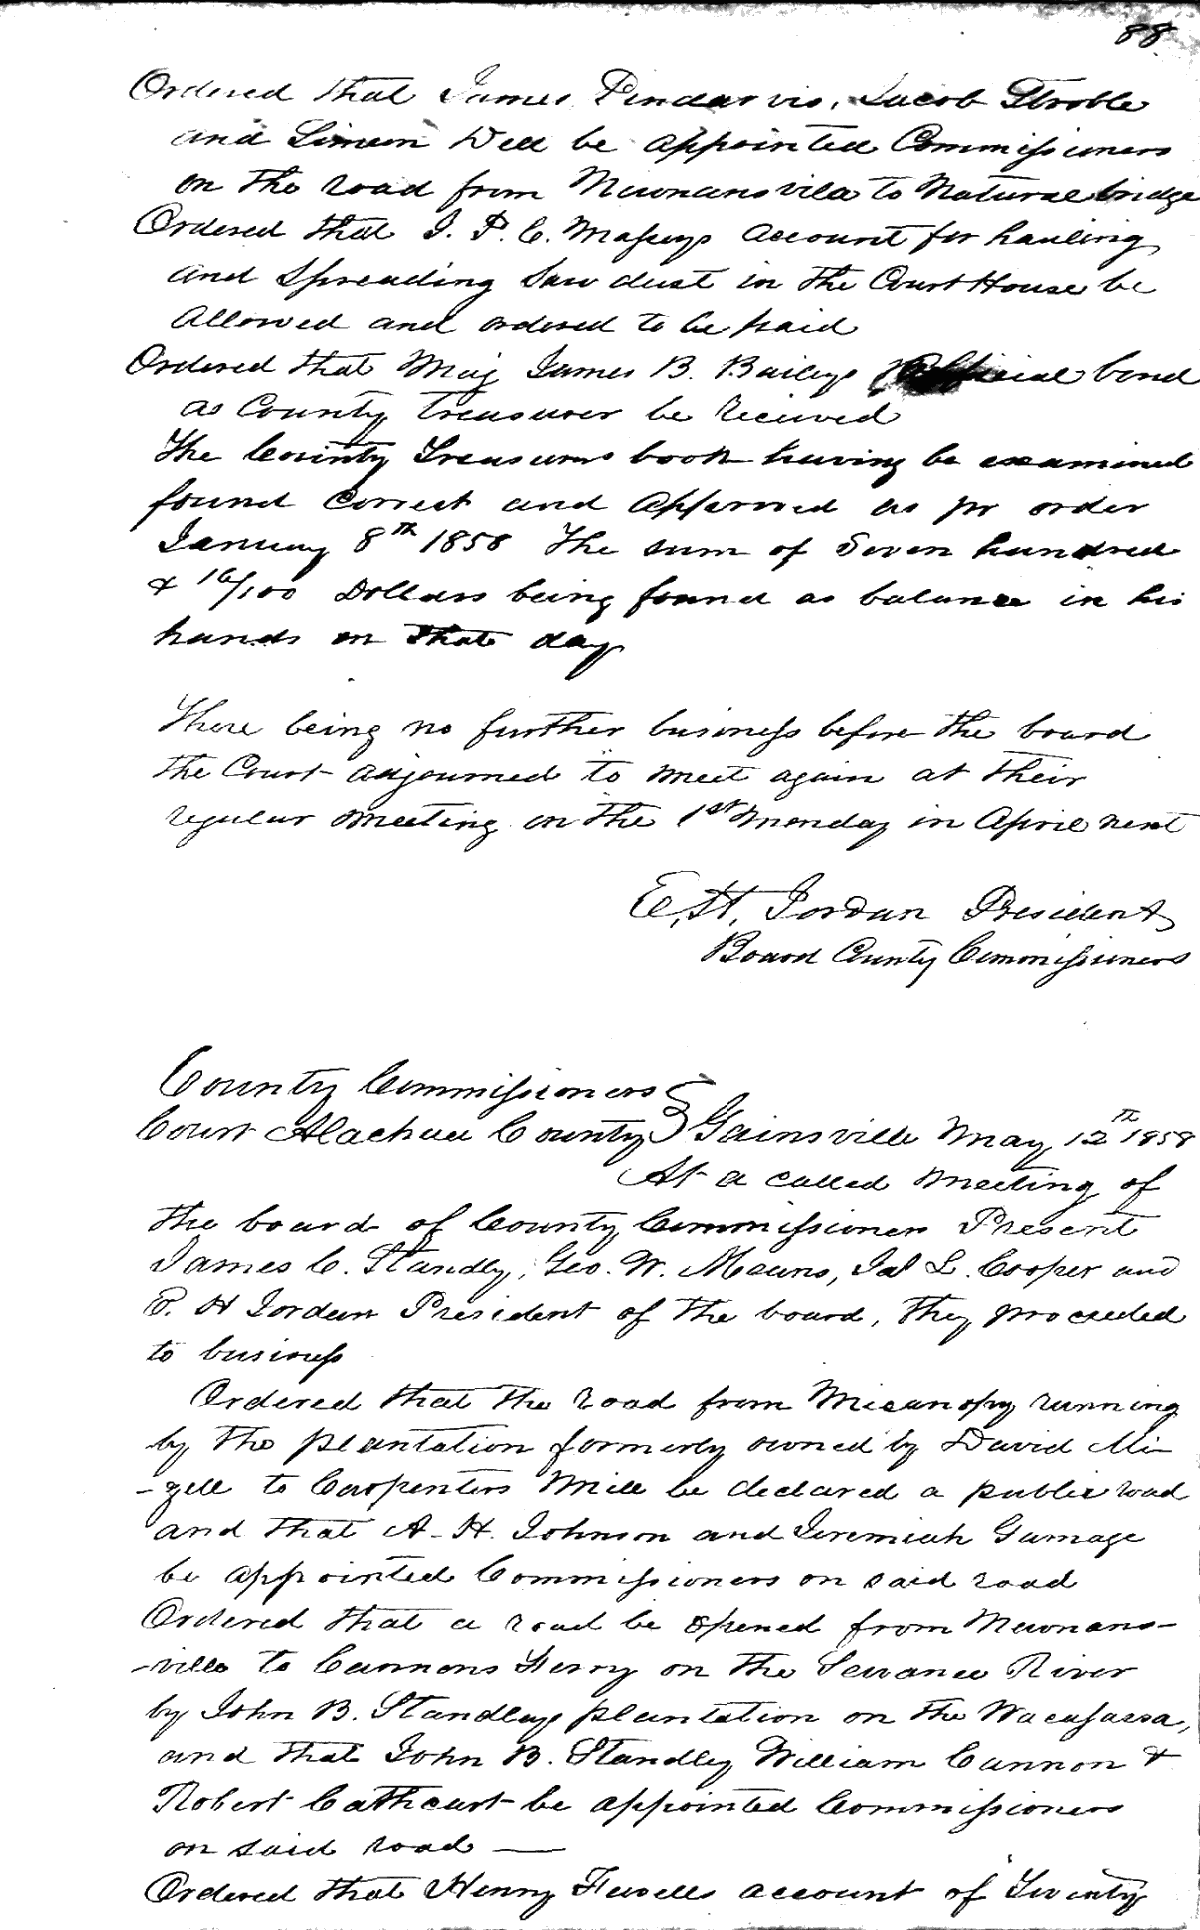 88
Ordered that James Pendarvis, Jacob Stroble
and Simeon Dell be appointed Commissioners
on the road from Newnansvila to Natural bridge
Ordered that J. P. C. Masseys account for hauling
and Spreading Saw dust in the Court House be
Allowed and ordered to be paid
Ordered that Maj James B. Baileys official bond
as County treasurer be received
The County Treasurers book having be examined
found Correct and approved as pr order
January 8th 1858 The sum of Seven hundred
& 16/100 Dollars being found as balance in his
hands on that day
There being no further business before the board
the Court adjourned to meet again at their
regular meeting on the 1st Monday in April next
E, H, Jordan President
Board County Commissioners
County Commissioners
Court Alachua County } Gainsville May 12th 1858
At a called meeting of
the board of County Commissioners Present
James C. Standly, Geo. W. Means, Jas L. Cooper and
E. H Jordan President of the board, they proceeded
to business
Ordered that the road from Micanopy running
by the plantation formerly owned by David Mi-
-zell to Carpenters Mill be declared a public road
and that A. H. Johnson and Jeremiah Gamage
be appointed Commissioners on said road
Ordered that a road be opened from Newnans-
-ville to Cannons Ferry on the Sewanee River
by John B. Standleys plantation on the Wacasassa,
and that John B. Standley William Cannon &
Robert Cathcart be appointed Commissioners
on said road —
Ordered that Henry Fewells account of Twenty